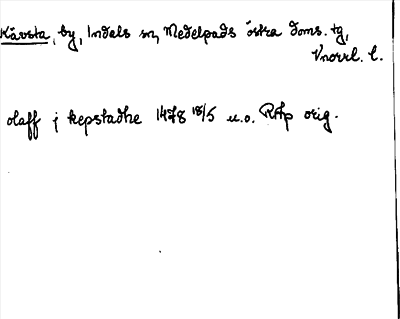 Kävsta, by, Indals sn, Medelpads östra doms. tg,
Vnorrl. l.
olaff j kepstadhe 1478 18/5 u.o. RAp orig.